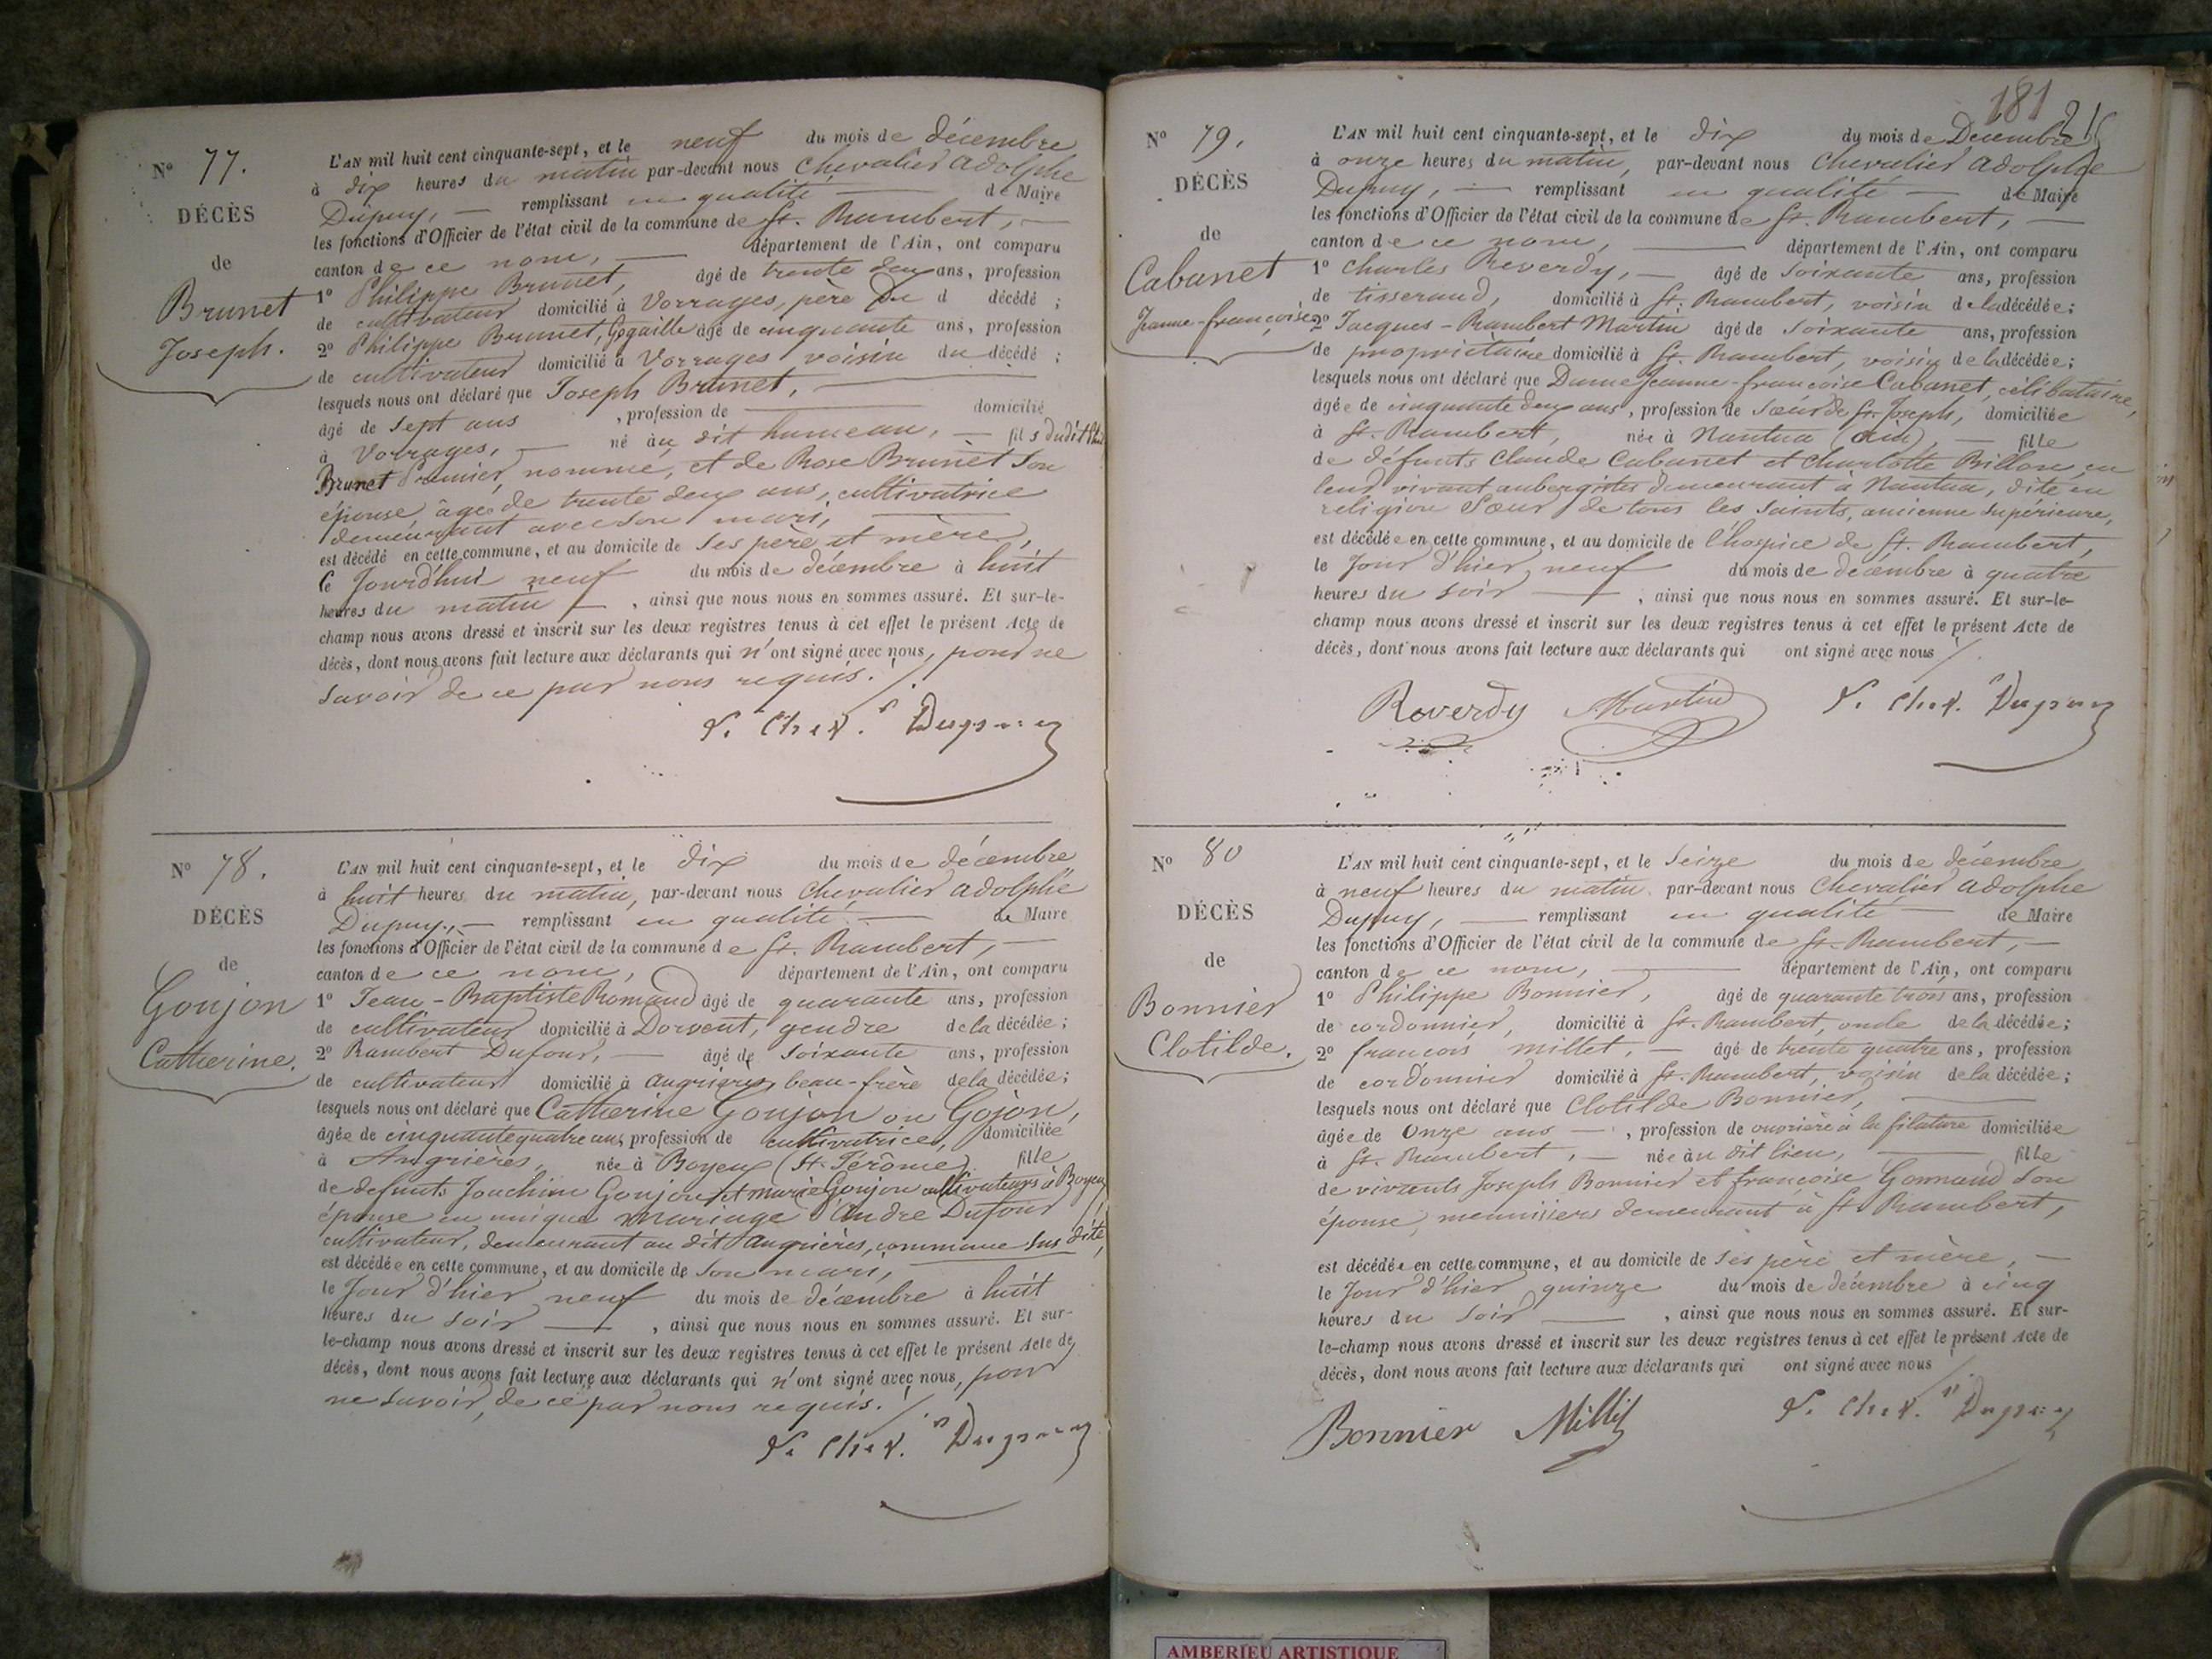 N° 77.
DÉCÈS
de
Brunet
Joseph.
L'AN mil huit cent cinquante-sept, et le neuf du mois de décembre
à dix heures du matin par-devant nous Chevalier Adolphe
Dupuy, — remplissant en qualité — de Maire
les fonctions d'Officier de l'état civil de la commune de St. Rambert, —
canton de ce nom, — département de l'Ain, ont comparu
1° Philippe Brunet, âgé de trente deux ans, profession
de cultivateur domicilié à Vorrages, père du d décédé ;
2° Philippe Brunet, âgé de cinquante ans, profession
de cultivateur domicilié à Vorrages voisin du décédé ;
lesquels nous ont déclaré que Joseph Brunet, —
âgé de sept ans , profession de — domicilié
à Vorrages, — né au dit hameau, — fils dudit
Brunet Premier nommé, et de Rose Brunet son
épouse âgée de trente deux ans, cultivatrice
demeurant avec son mari, —
est décédé en cette commune, et au domicile de ses père et mère,
ce Jourd'hui neuf du mois de décembre à huit
heures du matin — , ainsi que nous nous en sommes assuré. Et sur-le-
champ nous avons dressé et inscrit sur les deux registres tenus à cet effet le présent Acte de
décès, dont nous avons fait lecture aux déclarants qui n'ont signé avec nous, pour ne
savoir de ce par nous requis.
Chev. Dupuy
N° 78.
DÉCÈS
de
Goujon
Catherine.
L'AN mil huit cent cinquante-sept, et le dix du mois de décembre
à huit heures du matin, par-devant nous Chevalier Adolphe
Dupuy, — remplissant en qualité — de Maire
les fonctions d'Officier de l'état civil de la commune de St. Rambert, —
canton de ce nom, département de l'Ain, ont comparu
1° Jean-Baptiste Romand âgé de quarante ans, profession
de cultivateur domicilié à Dorvent, gendre de la décédée ;
2° Rambert Dufour, — âgé de soixante ans, profession
de cultivateur domicilié à Angrières, beau-frère de la décédée ;
lesquels nous ont déclaré que Catherine Goujon ou Gojon,
âgée de cinquante quatre ans, profession de cultivatrice, domiciliée
à Angrières, née à Boyeux (St. Jérôme) fille
de défunts Joachim Goujon et Marie Goujon cultivateurs à Boyeux,
épouse en unique mariage d'André Dufour
cultivateur, demeurant au dit Angrières, commune sus dite,
est décédée en cette commune, et au domicile de son mari, —
le Jour d'hier neuf du mois de décembre à huit
heures du soir — , ainsi que nous nous en sommes assuré. Et sur-
le-champ nous avons dressé et inscrit sur les deux registres tenus à cet effet le présent Acte de
décès, dont nous avons fait lecture aux déclarants qui n'ont signé avec nous, pour
ne savoir, de ce par nous requis.
Chev. Dupuy
181
N° 79.
DÉCÈS
de
Cabanet
Jeanne-françoise
L'AN mil huit cent cinquante-sept, et le dix du mois de Décembre
à onze heures du matin, par-devant nous Chevalier Adolphe
Dupuy, — remplissant en qualité — de Maire
les fonctions d'Officier de l'état civil de la commune de St. Rambert, —
canton de ce nom, — département de l'Ain, ont comparu
1° Charles Reverdy, — âgé de soixante ans, profession
de tisserand, domicilié à St. Rambert, voisin de la décédée ;
2° Jacques-Rambert Martin âgé de soixante ans, profession
de propriétaire domicilié à St. Rambert, voisin de la décédée ;
lesquels nous ont déclaré que Dame Jeanne-françoise Cabanet, célibataire,
âgée de cinquante deux ans, profession de Sœur de St. Joseph, domiciliée
à St. Rambert, née à Nantua (Ain), — fille
de défunts Claude Cabanet et Charlotte Billon en
leur vivant aubergistes demeurant à Nantua, dite en
religion Sœur de tous les Saints, ancienne supérieure,
est décédée en cette commune, et au domicile de l'hospice de St. Rambert,
le Jour d'hier neuf du mois de décembre à quatre
heures du soir — , ainsi que nous nous en sommes assuré. Et sur-le-
champ nous avons dressé et inscrit sur les deux registres tenus à cet effet le présent Acte de
décès, dont nous avons fait lecture aux déclarants qui ont signé avec nous
Reverdy Martin Chev. Dupuy
N° 80
DÉCÈS
de
Bonnier
Clotilde.
L'AN mil huit cent cinquante-sept, et le seize du mois de décembre
à neuf heures du matin par-devant nous Chevalier Adolphe
Dupuy, — remplissant en qualité — de Maire
les fonctions d'Officier de l'état civil de la commune de St. Rambert, —
canton de ce nom, — département de l'Ain, ont comparu
1° Philippe Bonnier, âgé de quarante trois ans, profession
de cordonnier, domicilié à St. Rambert, oncle de la décédée ;
2° françois Millet, — âgé de trente quatre ans, profession
de cordonnier domicilié à St. Rambert, voisin de la décédée ;
lesquels nous ont déclaré que Clotilde Bonnier, —
âgée de Onze ans — , profession de ouvrière à la filature domiciliée
à St. Rambert, — née au dit lieu, — fille
de vivants Joseph Bonnier et françoise Gonnand son
épouse, menuisiers demeurant à St. Rambert,
est décédée en cette commune, et au domicile de ses père et mère, —
le Jour d'hier quinze du mois de décembre à cinq
heures du soir — , ainsi que nous nous en sommes assuré. Et sur-
le-champ nous avons dressé et inscrit sur les deux registres tenus à cet effet le présent Acte de
décès, dont nous avons fait lecture aux déclarants qui ont signé avec nous
Bonnier Millet Chev. Dupuy
AMBERIEU ARTISTIQUE